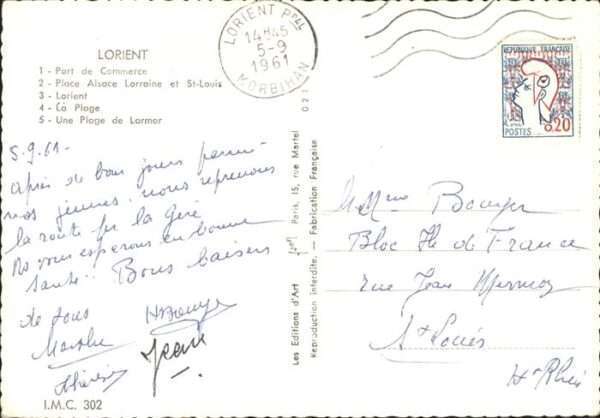 LORIENT
1 - Port de Commerce
2 - Place Alsace Lorraine et St-Louis
3 - Lorient
4 - La Plage
5 - Une Plage de Larmor
5.9.61-
après de bons jours parmi
nos jeunes, nous reprenons
la route
No vous espérons en bonne
santé. Bons baisers
de tous
Jean
I.M.C. 302
LORIENT Ppal
14H45
5-9
1961
MORBIHAN
Les Editions d'Art Paris, 15, rue Martel
Reproduction interdite. - Fabrication Française
REPUBLIQUE FRANÇAISE
POSTES 0,20
Mme
Bloc Ile de France
rue Jean Mermoz
St Louis
Ht Rhin